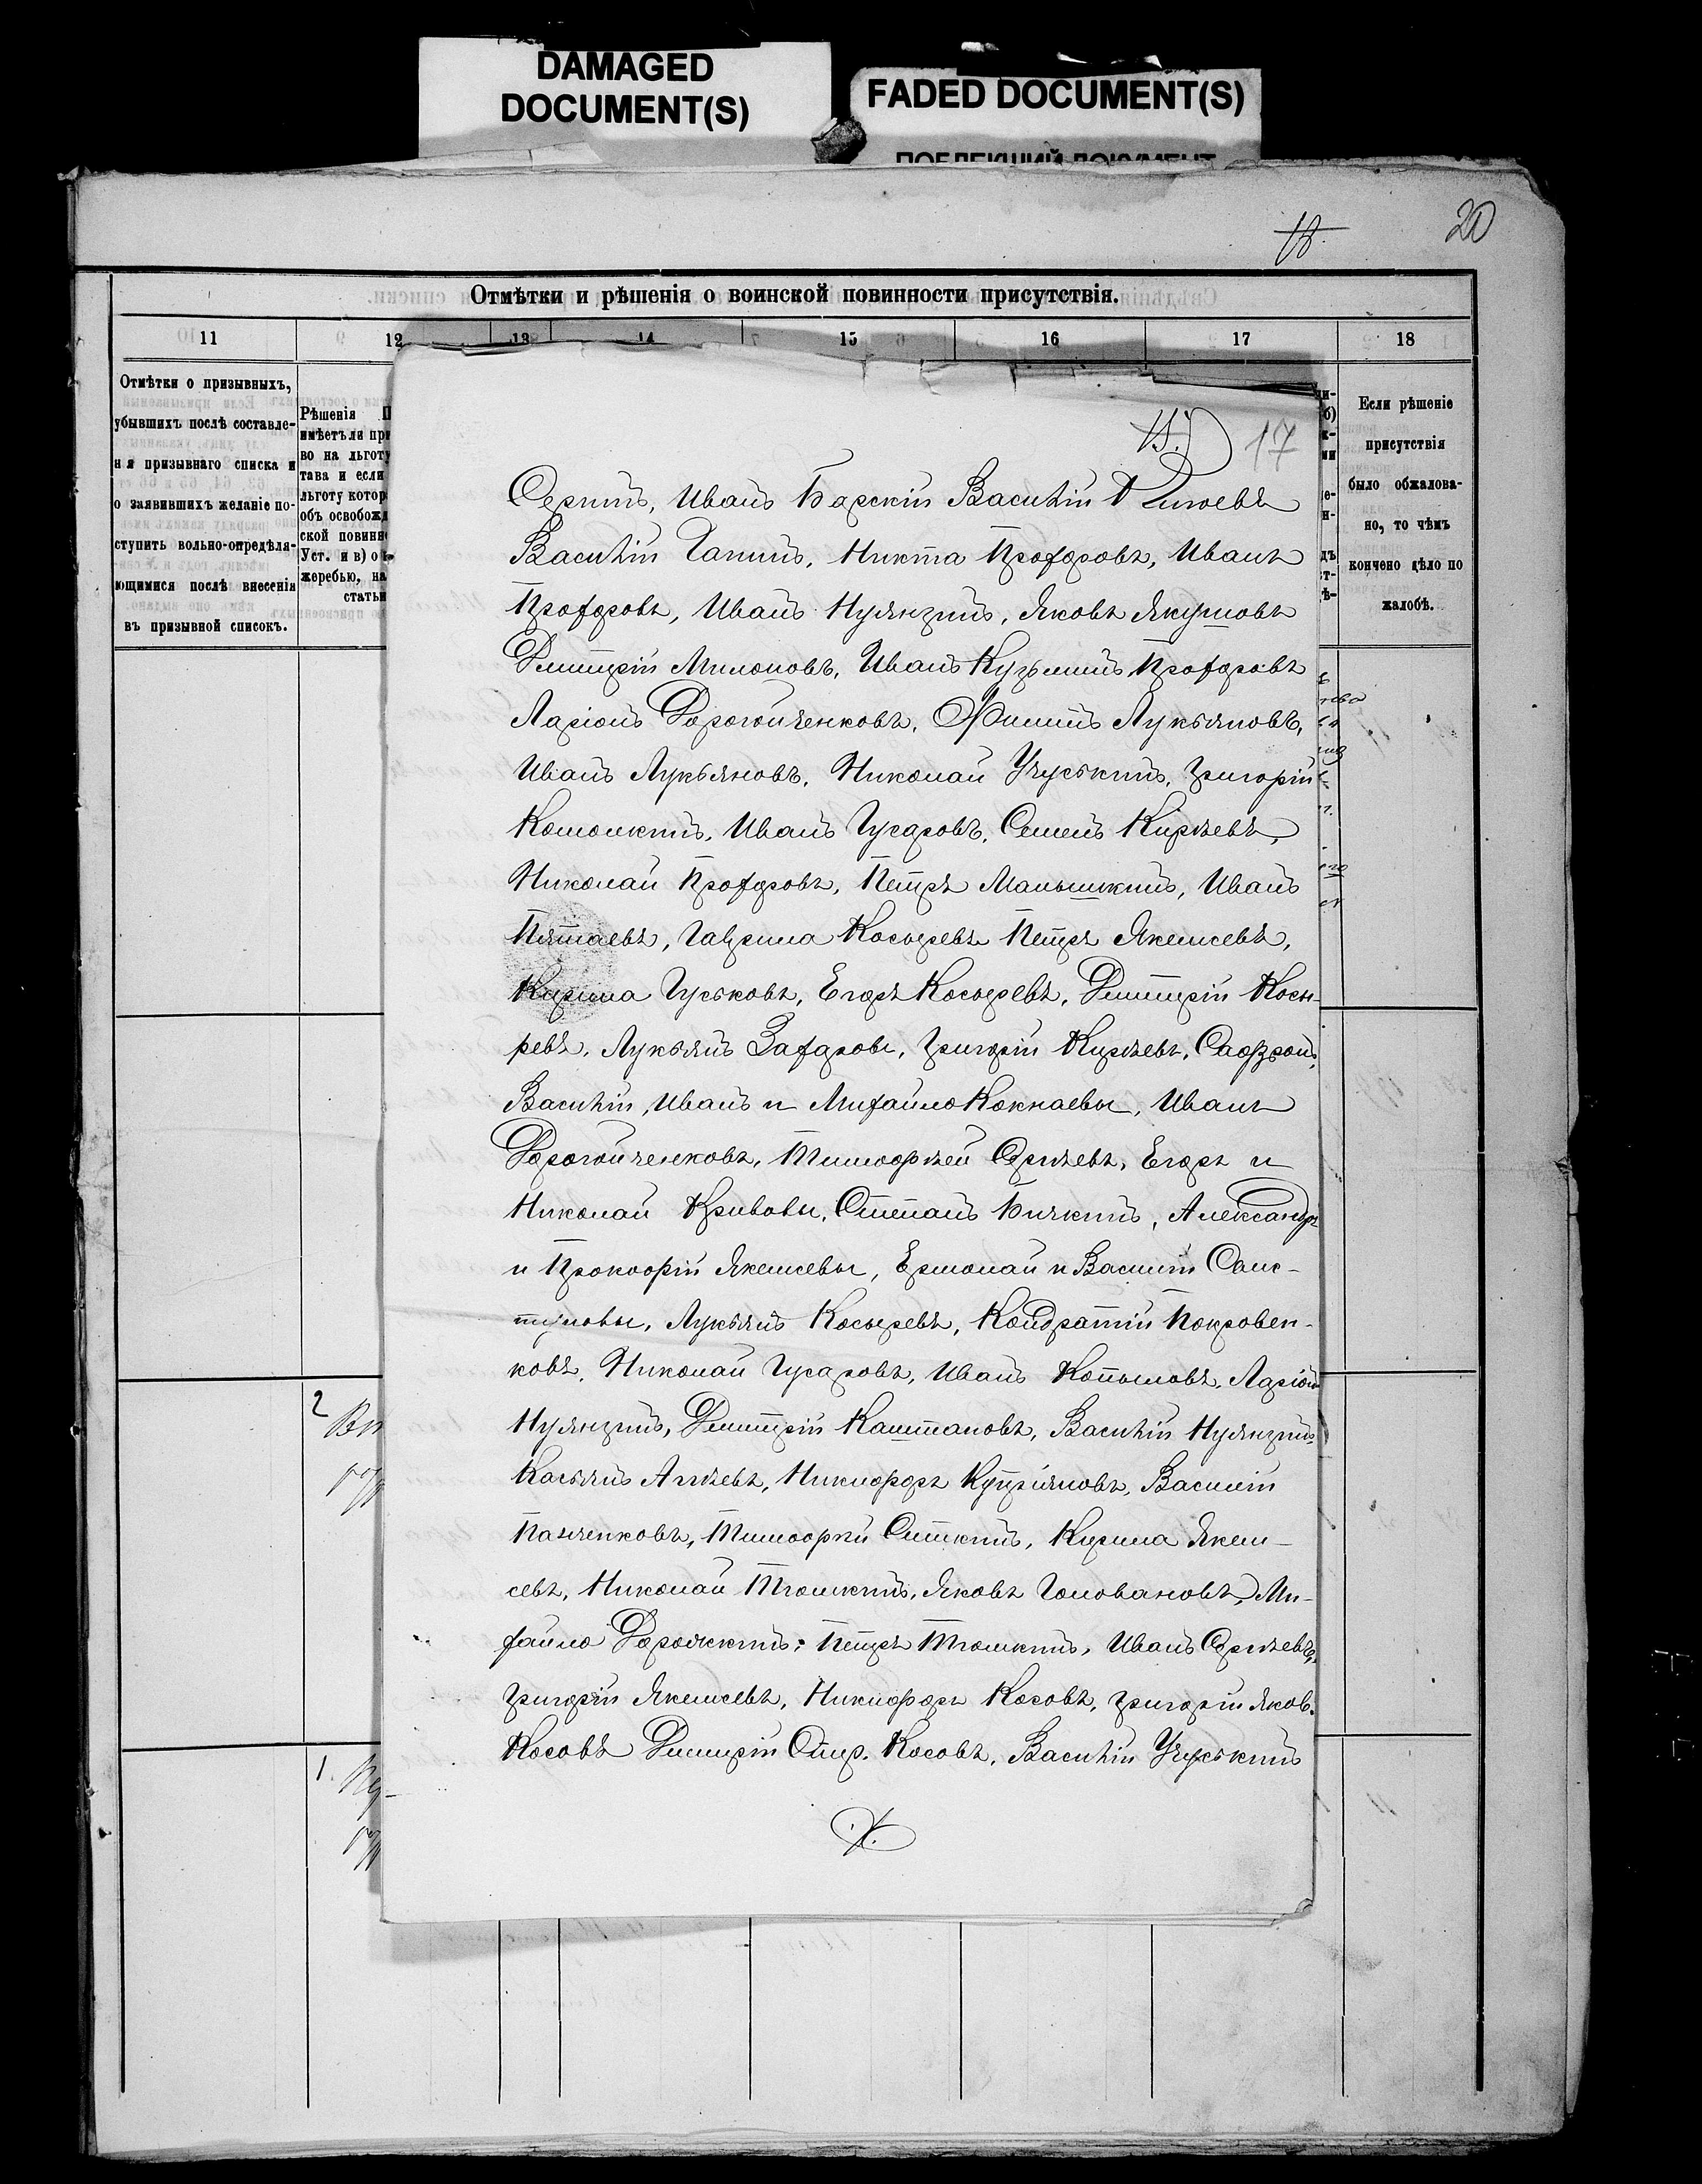 DAMAGED
DOCUMENT(S)
FADED DOCUMENT(S)
ПОБЛЕКШИЙ ДОКУМЕНТ
18.
20
Отмѣтки и рѣшенія о воинской повинности присутствія.
11 12 13 14 15 16 17 18
Отмѣтки о призывныхъ,
убывшихъ послѣ составле-
нія призывнаго списка и
о заявившихъ желаніе по-
ступить вольно-опредѣля-
ющимися послѣ внесенія
въ призывной списокъ.
Рѣшенія П
имѣетъ ли пр
во на льготу
тава и если
льготу котор
объ освобожд
ской повинн
Уст. и в) о
жеребью, на
статьи
Если рѣшеніе
присутствія
было обжалова-
но, то чѣмъ
кончено дѣло по
жалобѣ.
17
Иванъ Барскій Василій
Василій Ганинъ, Никита Прохоровъ, Иванъ
Прохоровъ, Иванъ Нулянзинъ, Яковъ Якушовъ
Дмитрій Милоновъ, Иванъ Кузьминъ Прохоровъ
Ларіонъ Дорогойченковъ, Филипъ Лукьяновъ,
Иванъ Лукьяновъ, Николай Учуськинъ, Григорій
Кошолкинъ, Иванъ Гусаровъ, Семенъ Кирѣевъ,
Николай Прохоровъ, Петръ Манышкинъ, Иванъ
Пятаевъ, Гаврила Косыревъ Петръ Якемсевъ,
Кирила Гуськовъ, Егоръ Косыревъ, Дмитрій Косы-
ревъ, Лукьянъ Захаровъ, Григорій Кирѣевъ, Сафронъ,
Василій, Иванъ и Михайло Кокнаевы, Иванъ
Дорогойченковъ, Тимофѣй Сѣргѣевъ, Егоръ и
Николай Кривовы, Степанъ Бичкинъ, Александръ
и Прокофій Якемсевы, Ермолай и Василій Санс-
туловы, Лукьянъ Косыревъ, Кондратій Покровен-
ковъ, Николай Гусаровъ, Иванъ Копыловъ, Ларіонъ
Нулянзинъ, Дмитрій Каштановъ, Василій Нулянзинъ
Касьянъ Агѣевъ, Никифоръ Купріяновъ, Василій
Панченковъ, Тимофей Ситкинъ, Кирила Якем-
севъ, Николай Тюшкинъ, Яковъ Головановъ, Ми-
хайло Дорожкинъ, Петръ Тюшкинъ, Иванъ
Григорій Якемсевъ, Никифоръ Косовъ, Григорій Яков.
Косовъ Дмитрій Спир. Косовъ, Василій Учуськинъ
2
1.